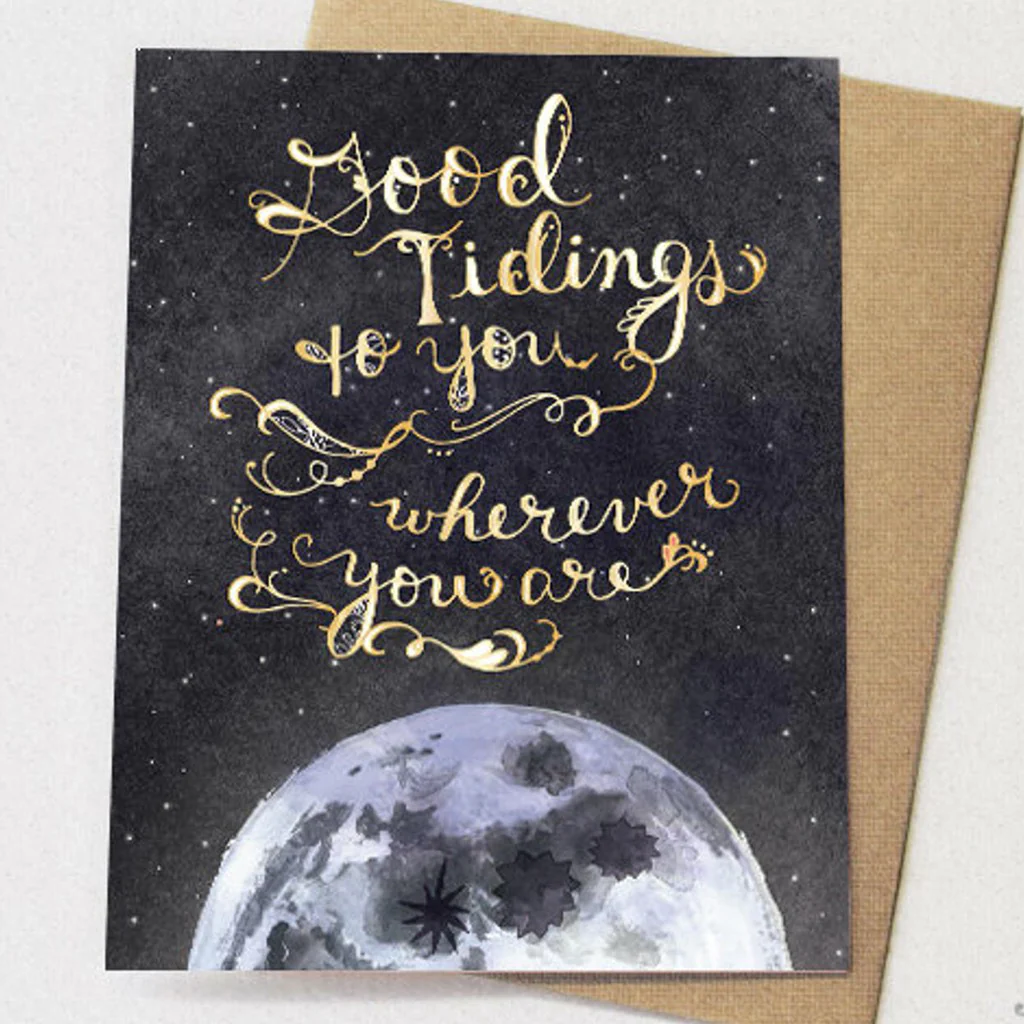 Good
Tidings
to you
wherever
you are